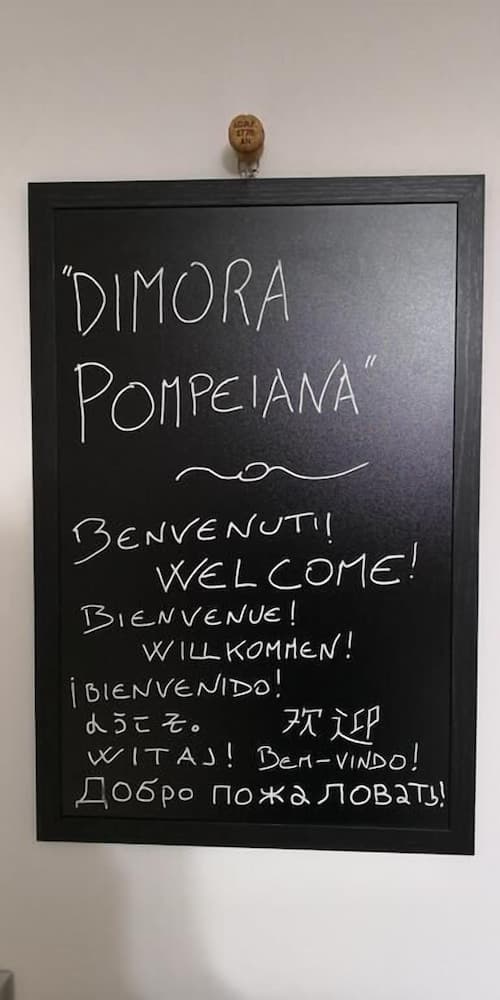 "DIMORA
POMPEIANA"
BENVENUTI!
WELCOME!
BIENVENUE!
WILLKOMMEN!
¡BIENVENIDO!
ようこそ。 欢迎
WITAJ! BEM-VINDO!
Добро пожаловать!